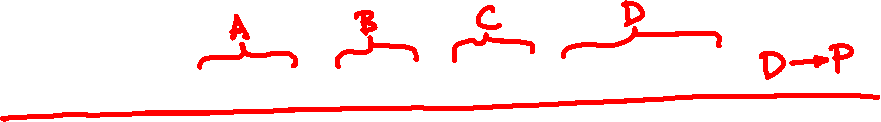 A B C D
D → P